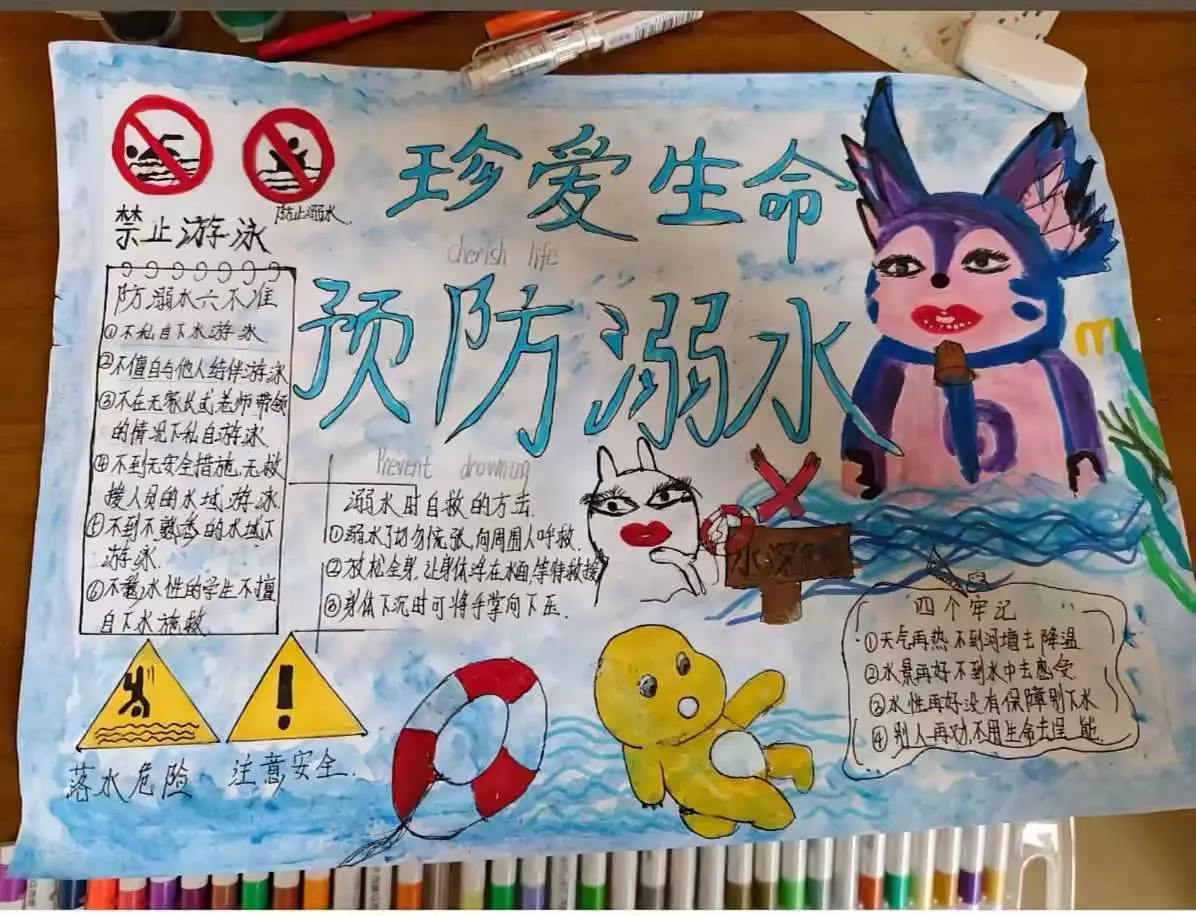 珍爱生命
cherish life
预防溺水
Prevent drowning
禁止游泳
防止溺水
防溺水六不准
①不私自下水游泳
②不擅自与他人结伴游泳
③不在无家长或老师带领
的情况下私自游泳
④不到无安全措施、无救
援人员的水域游泳
⑤不到不熟悉的水域下
游泳
⑥不熟水性的学生不擅
自下水施救
溺水时自救的方法
①溺水了切勿慌张,向周围人呼救.
②放松全身,让身体浮在水面,等待救援
③身体下沉时可将手掌向下压.
水深
四个牢记
①天气再热不到河塘去降温
②水景再好不到水中去感受
③水性再好没有保障别下水
④别人再劝不用生命去逞能
落水危险
注意安全.